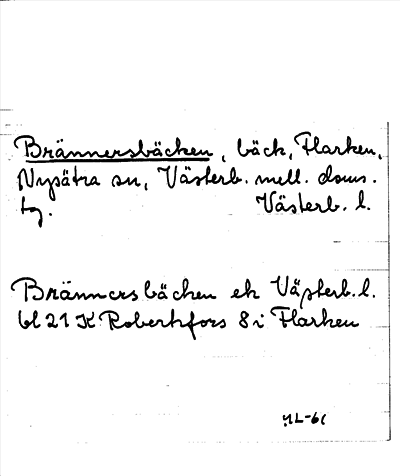 Brännersbäcken, bäck, Flarken,
Nysätra sn, Västerb. mell. doms.
tg. Västerb. l.
Brännersbäcken ek Västerb. l.
bl 21 K Robertsfors 8 i Flarken